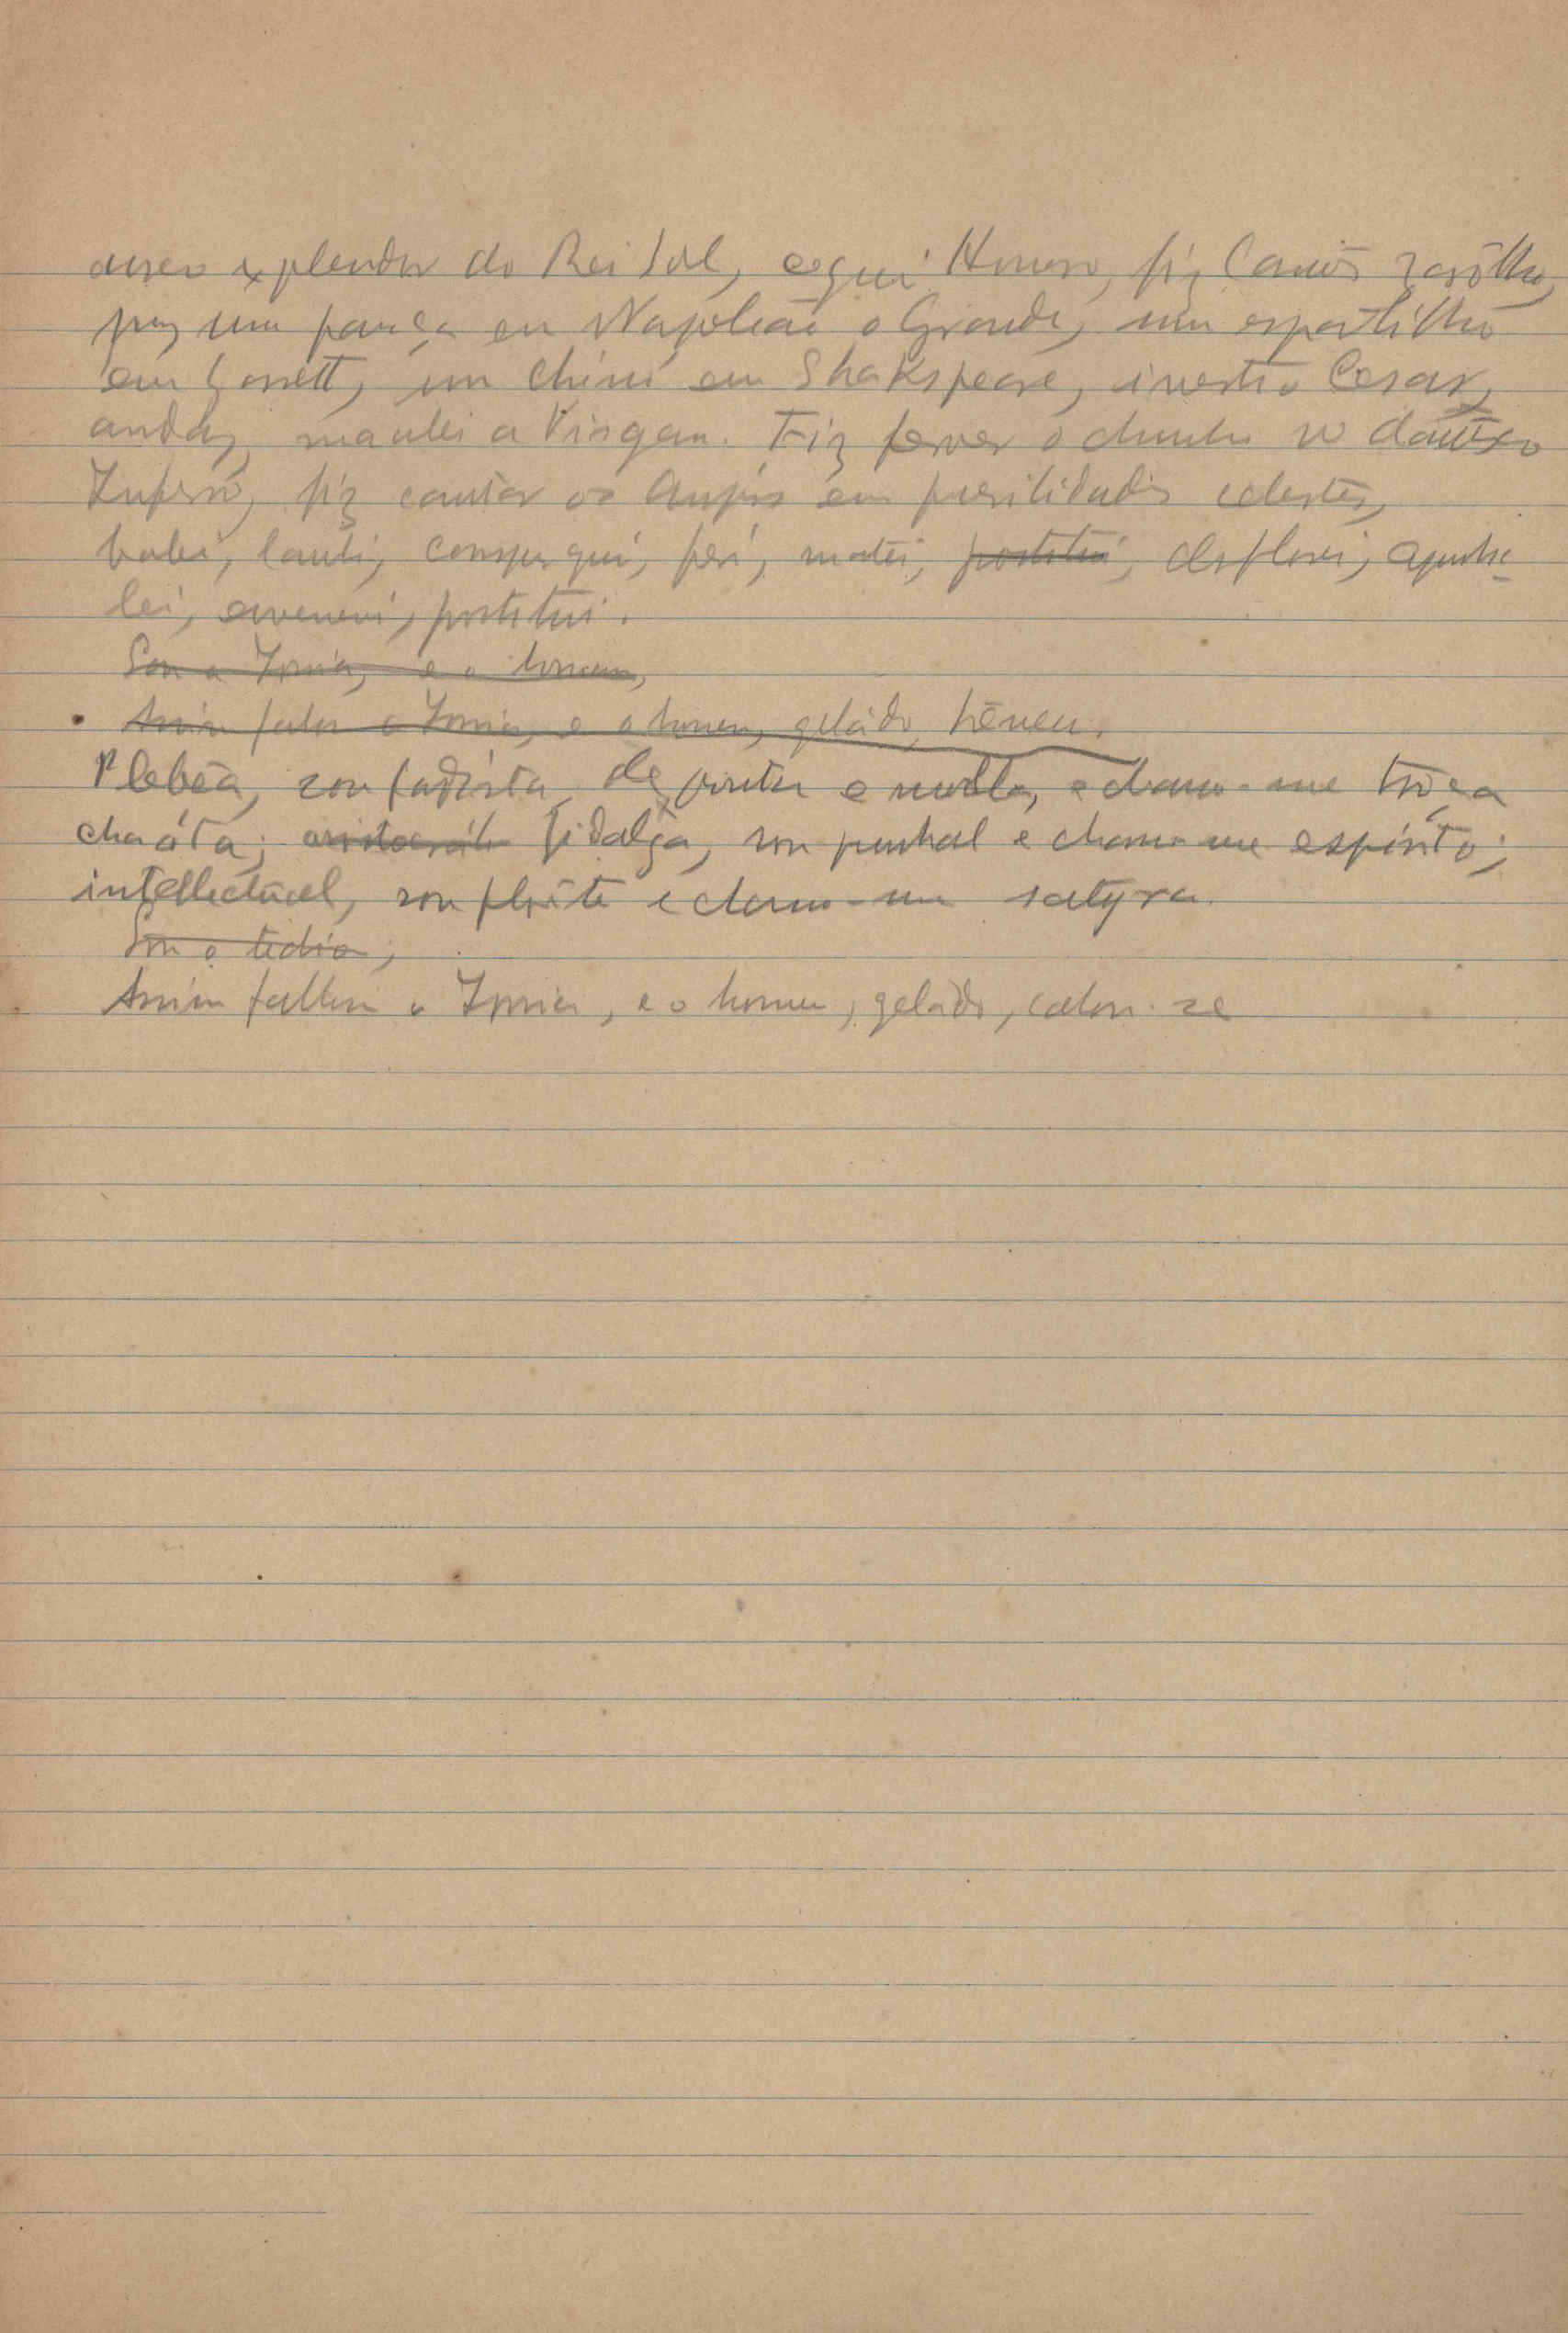 aureo explendor do Rei Sol, ceguei Homero, fiz Camões zarôlho,
puz uma pança em Napoleão o Grande, um espartilho
em Garrett, um chinó em Shakspeare, inverti o Cesar,
audaz, manchei a Virgem. Fiz ferver o chumbo no
Inferno, fiz cantar os Anjos em puerilidades celestes,
babei, conspurquei, feri, matei, prostitui, deflorei, apunha-
lei, envenenei, prostitui.
Sou a Ironia, e o homem,
Assim falou a Ironia, e o homem, gelado, tremeu.
Plebêa, sou fadista, de e navalha, e chamo-me tróça
charóta; aristocráta fidalga, sou punhal e chamo-me espirito;
intellectual, sou florête e chamo-me satyra.
Sou o tedio,
Assim fallou a Ironia, e o homem, gelado, calou-se